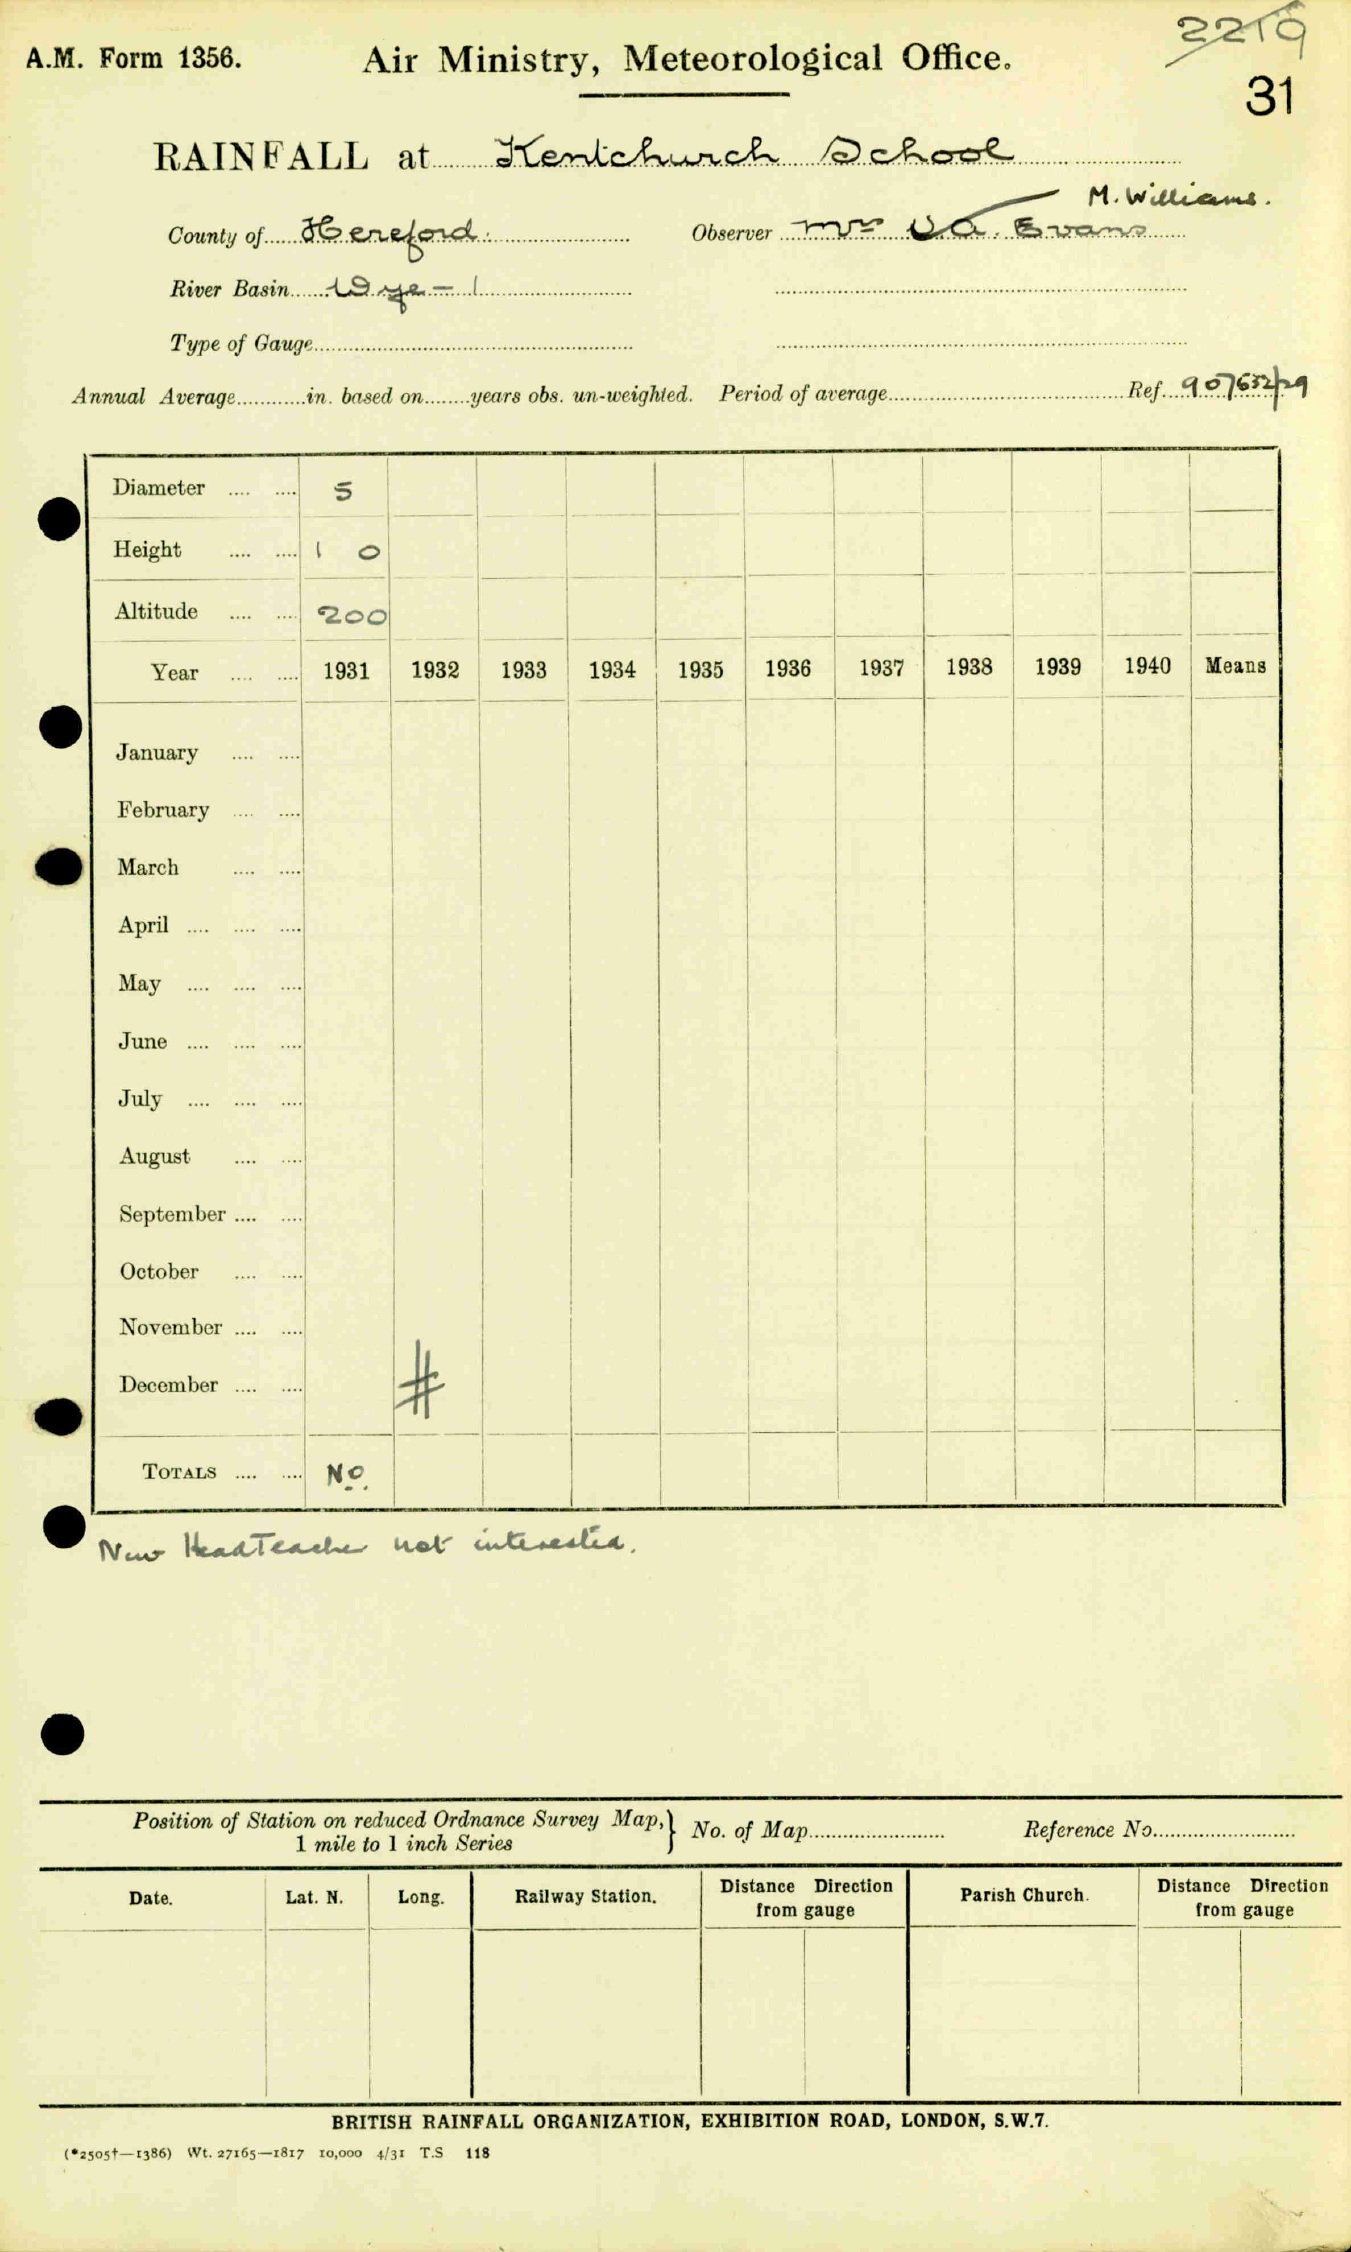 2219
A.M. Form 1356. Air Ministry, Meteorological Office.
31
RAINFALL at Kentchurch School
M. Williams.
County of Hereford. Observer Mrs V.A. Evans
River Basin Wye – 1
Type of Gauge
Annual Average in. based on years obs. un-weighted. Period of average Ref. 907632/29
Diameter .... .... 5
Height .... .... 1 0
Altitude .... .... 200
Year .... .... 1931 1932 1933 1934 1935 1936 1937 1938 1939 1940 Means
January .... ....
February .... ....
March .... ....
April .... .... ....
May .... .... ....
June .... .... ....
July .... .... ....
August .... ....
September .... ....
October .... ....
November .... ....
December .... .... #
TOTALS .... .... No.
New HeadTeacher not interested.
Position of Station on reduced Ordnance Survey Map, } No. of Map Reference No.
1 mile to 1 inch Series
Date. Lat. N. Long. Railway Station. Distance Direction from gauge Parish Church. Distance Direction from gauge
BRITISH RAINFALL ORGANIZATION, EXHIBITION ROAD, LONDON, S.W.7.
(*2505†—1386) Wt. 27165—1817 10,000 4/31 T.S 118